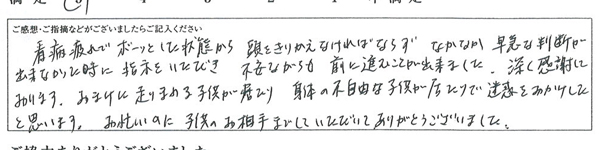 ご感想・ご指摘などがございましたらご記入ください
看病疲れでボーッとした状態から 頭をきりかえなければならず なかなか 早急な判断が
出来なかった時に 指示をいただき 不安ながらも 前に進むことが出来ました。深く感謝して
おります。おまけに走りまわる子供が居たり 身体の不自由な子供が居たりで迷惑をおかけした
と思います。お忙しいのに 子供のお相手までしていただいてありがとうございました。